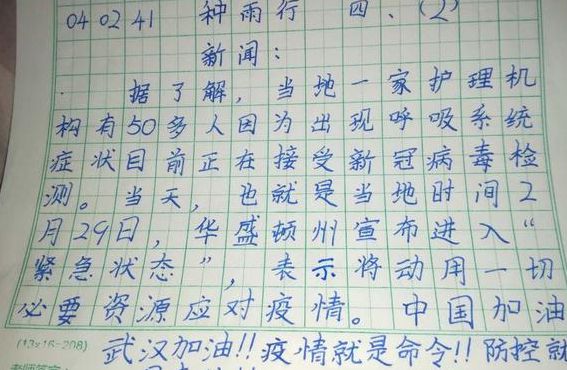 04 02 41 种雨行 四、(2)
新闻：
据了解，当地一家护理机
构有50多人因为出现呼吸系统
症状目前正在接受新冠病毒检
测。当天，也就是当地时间2
月29日，华盛顿州宣布进入“
紧急状态”，表示将动用一切
必要资源应对疫情。中国加油
(13×16=208) 武汉加油!!疫情就是命令!!防控就